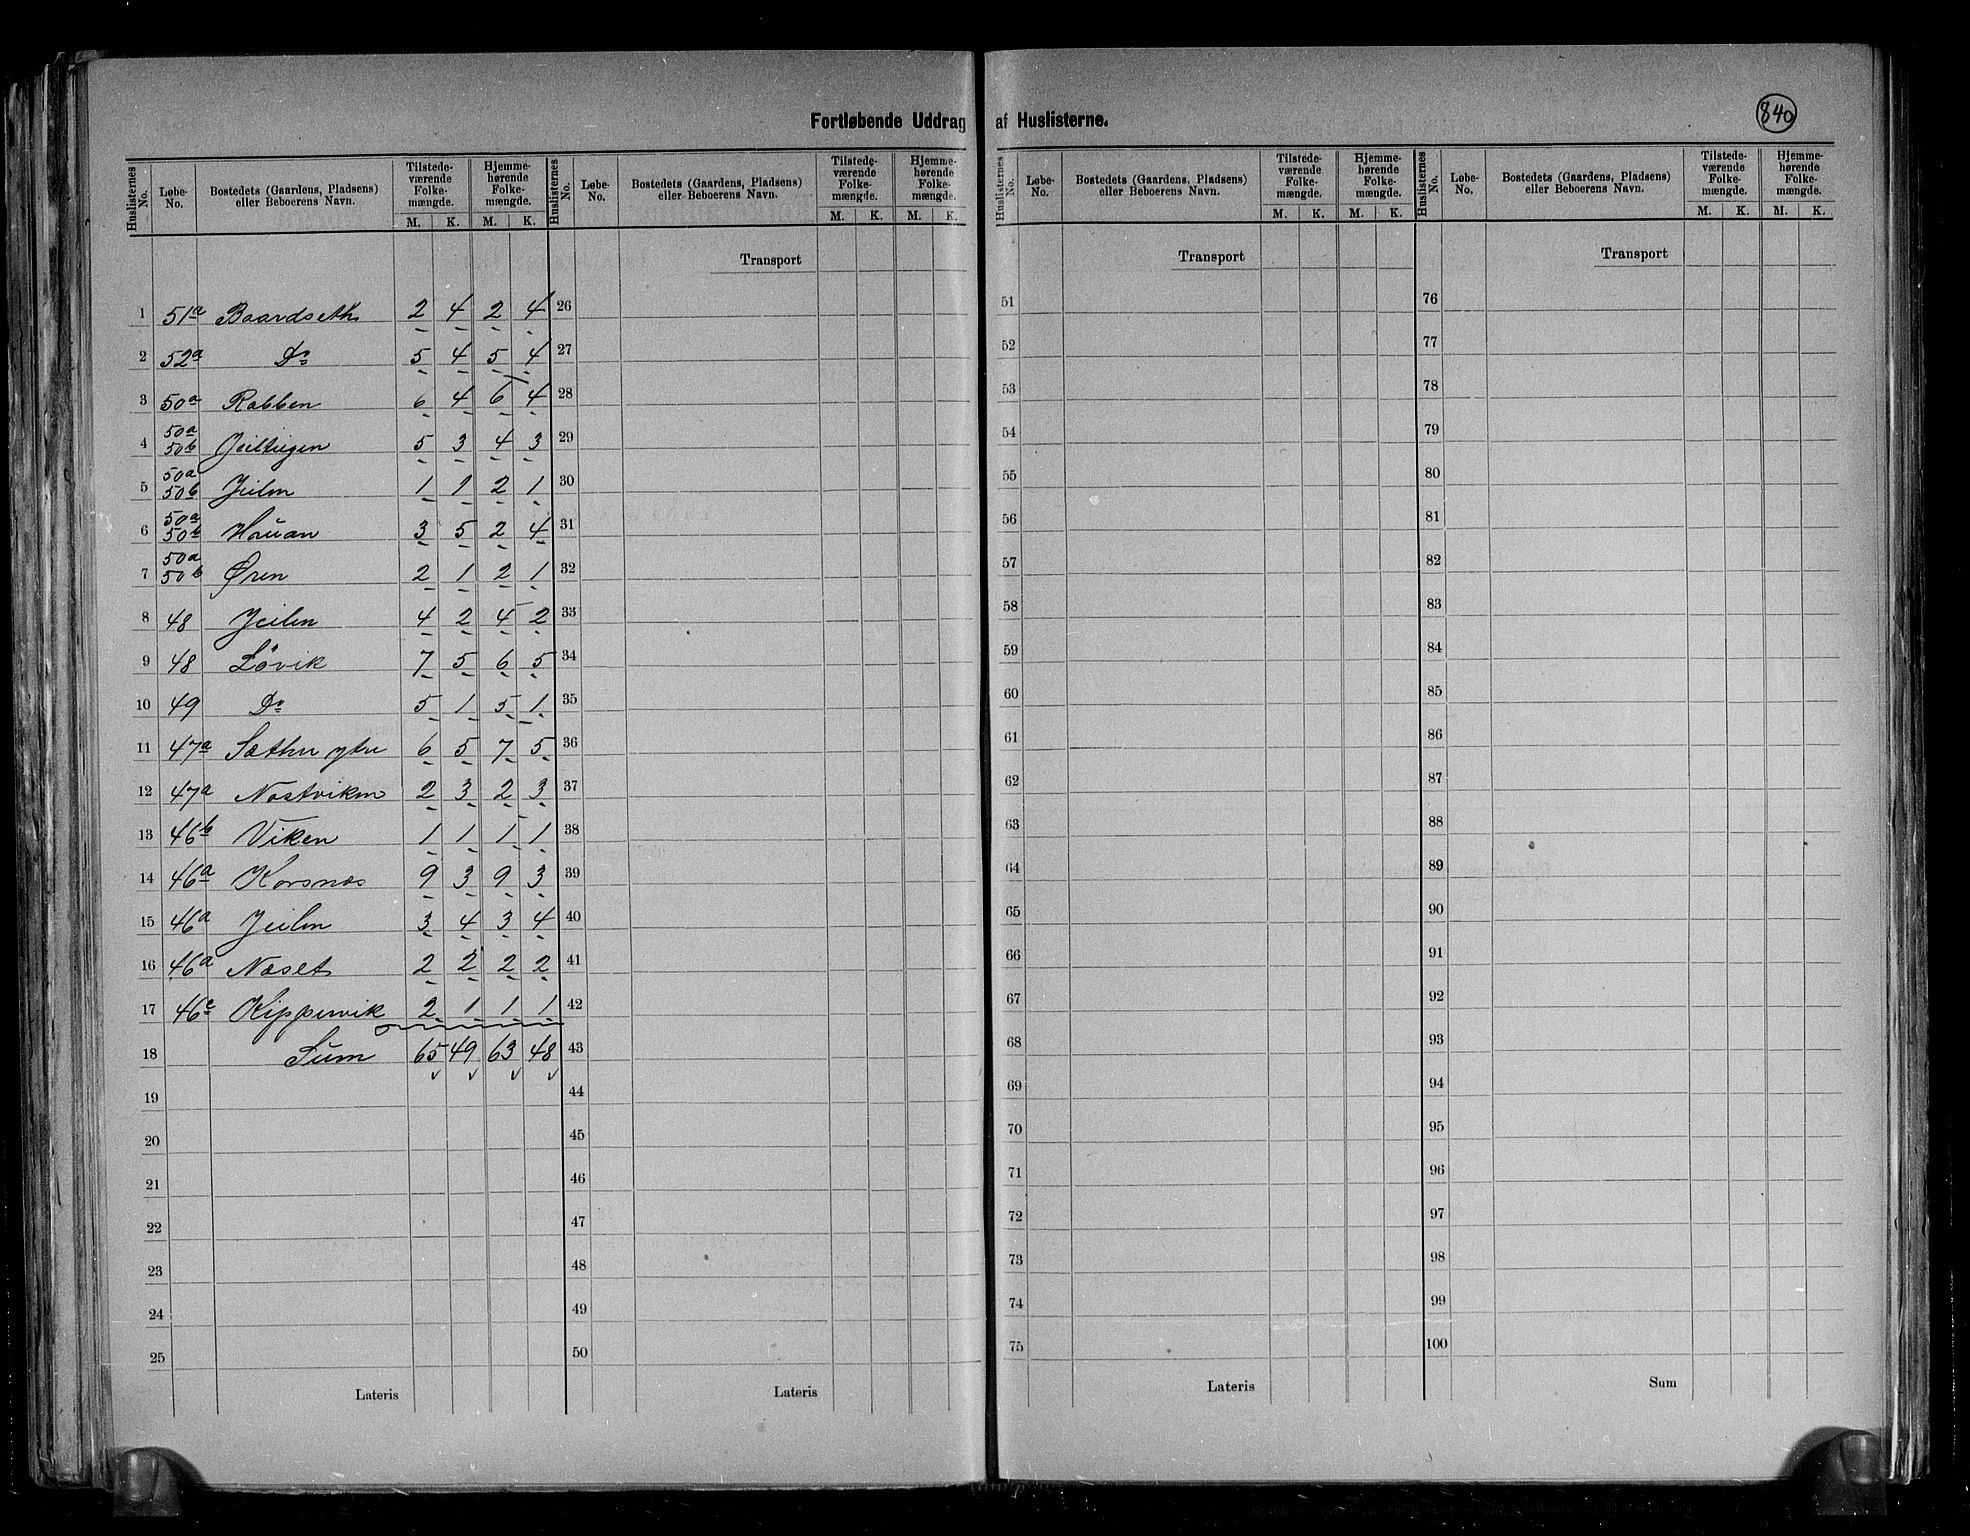 Fortløbende Uddrag af Huslisterne.
840
Huslisternes No. Løbe-No. Bostedets (Gaardens, Pladsens) eller Beboerens Navn. Tilstedeværende Folkemængde. M. K. Hjemmehørende Folkemængde. M. K.
Huslisternes No. Løbe-No. Bostedets (Gaardens, Pladsens) eller Beboerens Navn. Tilstedeværende Folkemængde. M. K. Hjemmehørende Folkemængde. M. K.
Huslisternes No. Løbe-No. Bostedets (Gaardens, Pladsens) eller Beboerens Navn. Tilstedeværende Folkemængde. M. K. Hjemmehørende Folkemængde. M. K.
Huslisternes No. Løbe-No. Bostedets (Gaardens, Pladsens) eller Beboerens Navn. Tilstedeværende Folkemængde. M. K. Hjemmehørende Folkemængde. M. K.
1 51a Baardseth 2 4 2 4
2 52a Do 5 4 5 4
3 50a Rabben 6 4 6 4
4 50a 50b 5 3 4 3
5 50a 50b Jeilen 1 1 2 1
6 50a 50b Hauan 3 5 2 4
7 50a 50b Øren 2 1 2 1
8 48 Jeilen 4 2 4 2
9 48 Løvik 7 5 6 5
10 49 Do 5 1 5 1
11 47a Sæthre ytre 6 5 7 5
12 47a Nostviken 2 3 2 3
13 46b Viken 1 1 1 1
14 46a Korsnæs 9 3 9 3
15 46a Jeilen 3 4 3 4
16 46a Næset 2 2 2 2
17 Kippervik 2 1 1 1
18 Sum 65 49 63 48
19
20
21
22
23
24
25
Lateris
Transport
26
27
28
29
30
31
32
33
34
35
36
37
38
39
40
41
42
43
44
45
46
47
48
49
50
Lateris
Transport
51
52
53
54
55
56
57
58
59
60
61
62
63
64
65
66
67
68
69
70
71
72
73
74
75
Lateris
Transport
76
77
78
79
80
81
82
83
84
85
86
87
88
89
90
91
92
93
94
95
96
97
98
99
100
Sum